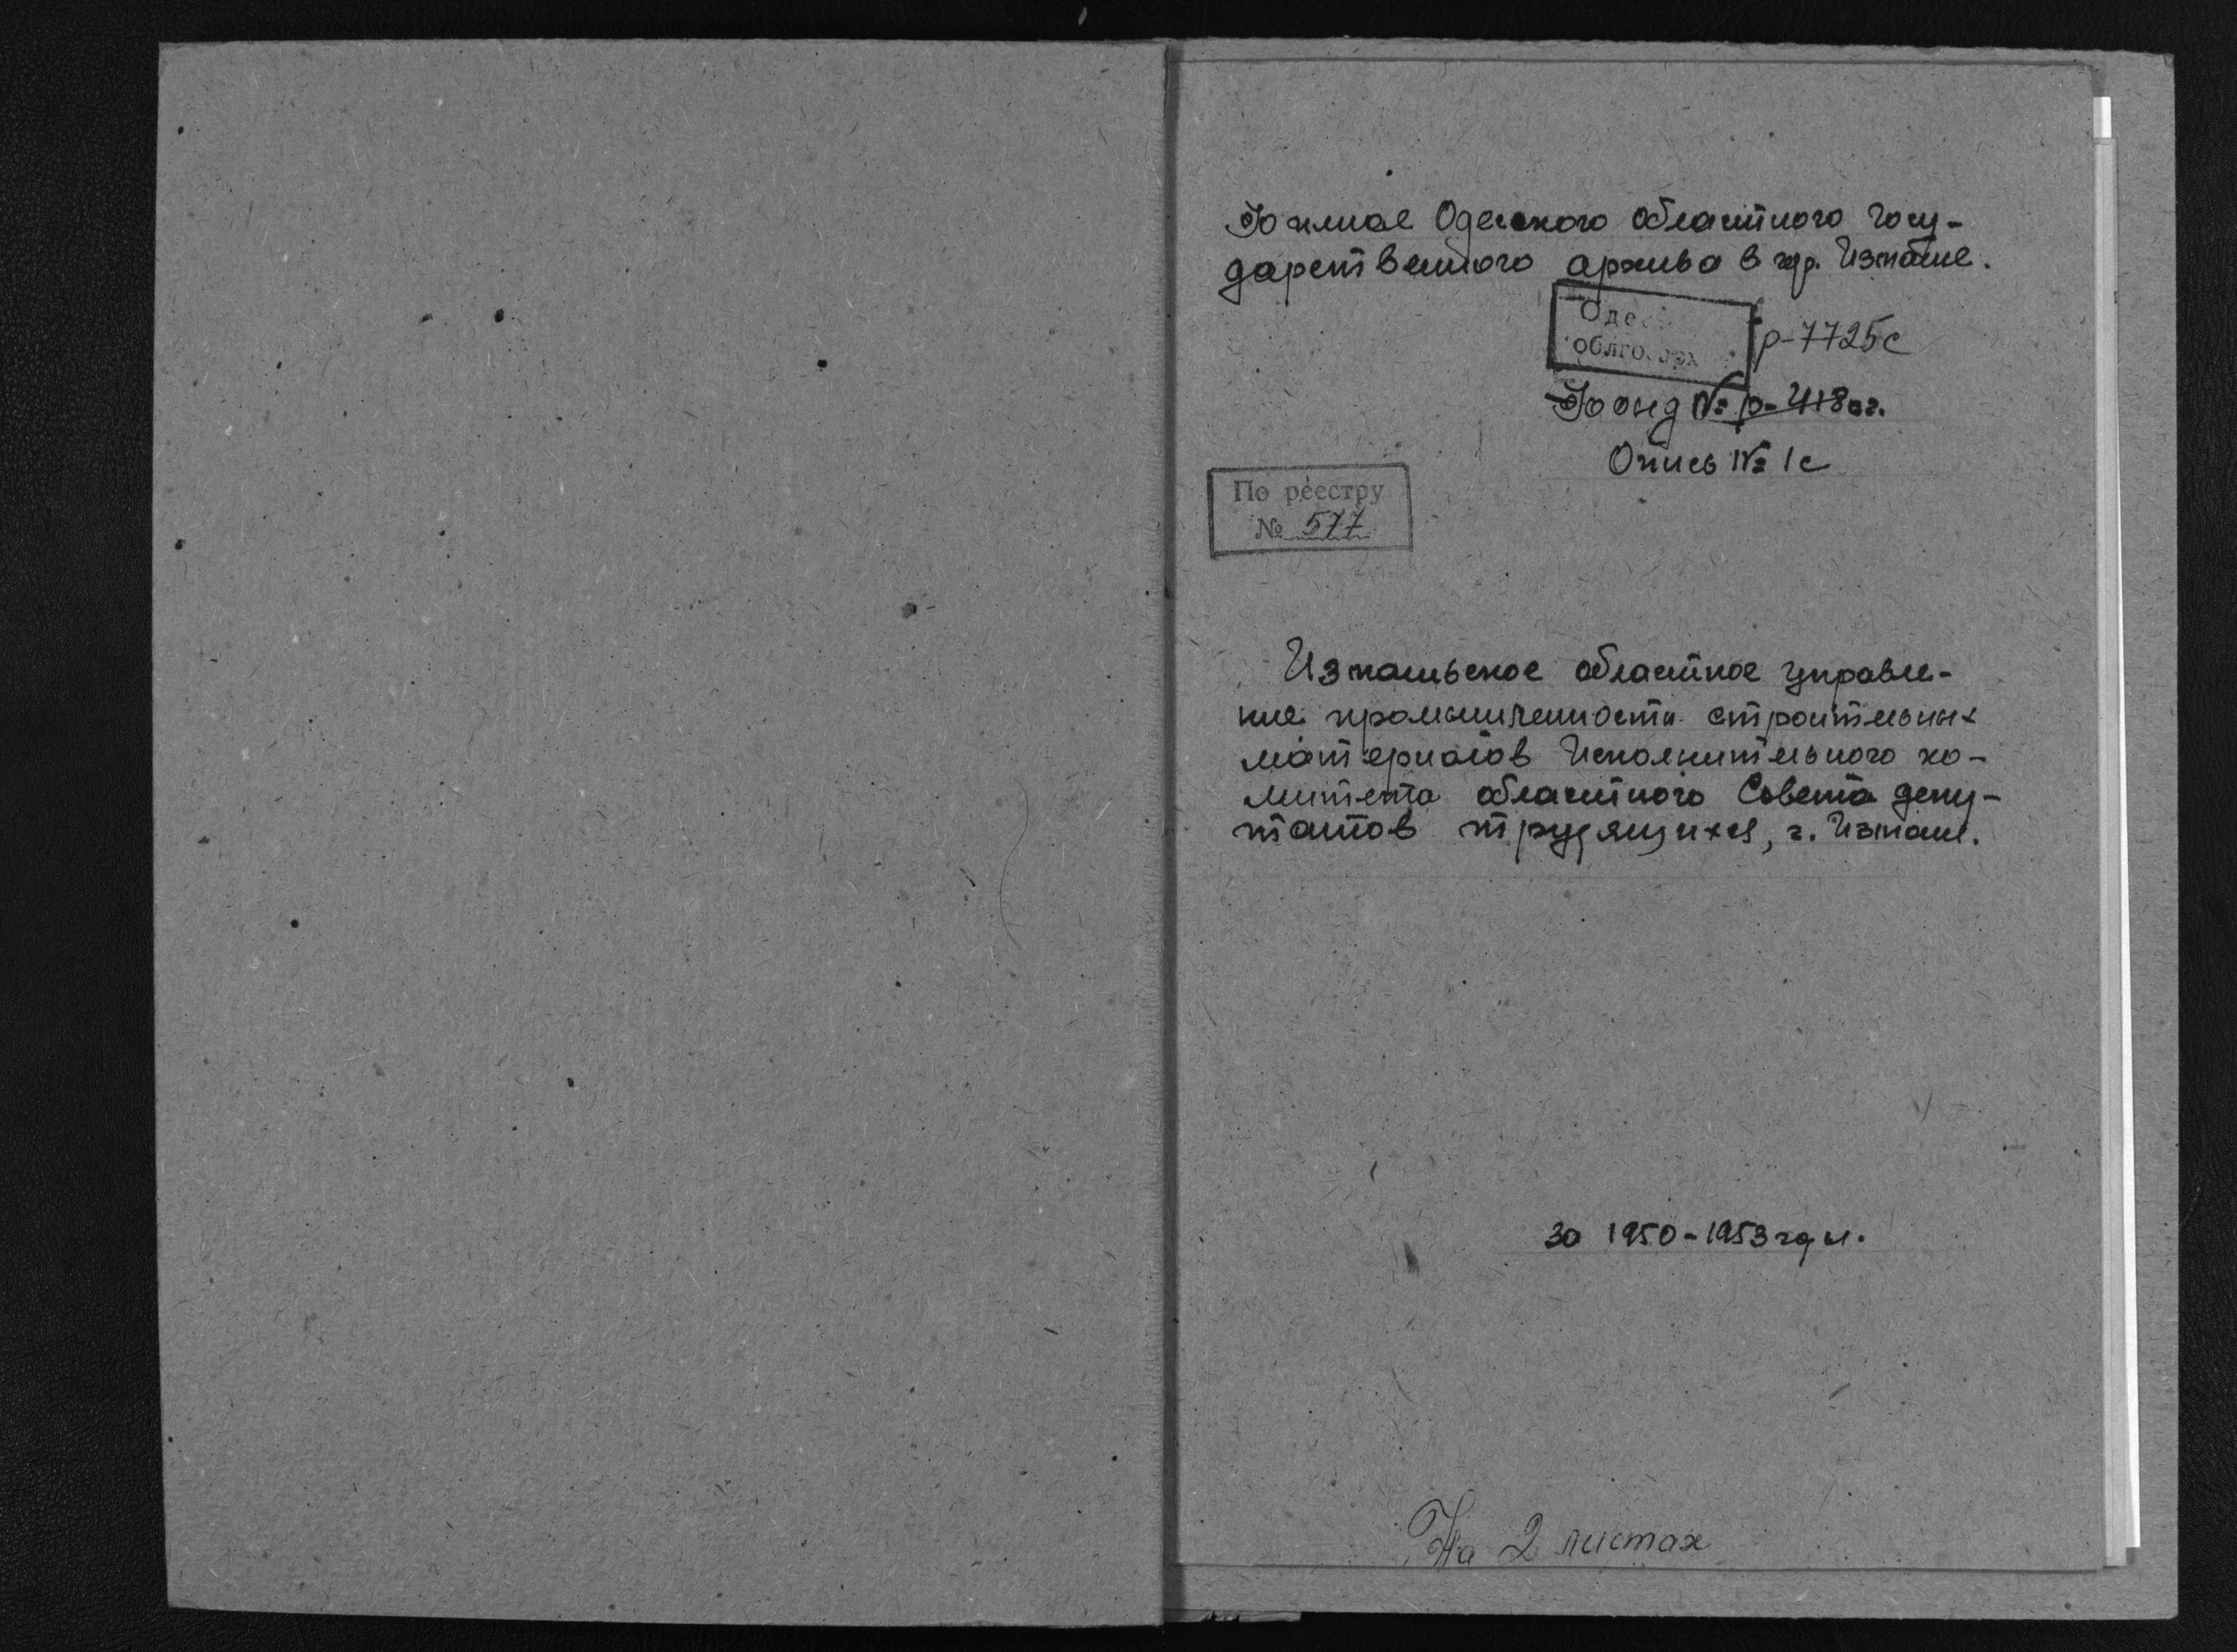 Филиал Одесского областного госу-
дарственного архива в гор. Измаиле.
Одес
облгосарх
р-7725с
Фонд № р-418
Опись № 1с
По реестру
№ 577
Измаильское областное управле-
ние промышленности строительных
материалов Исполнительного ко-
митета областного Совета депу-
татов трудящихся, г. Измаил.
за 1950-1953 годы.
На 2 листах